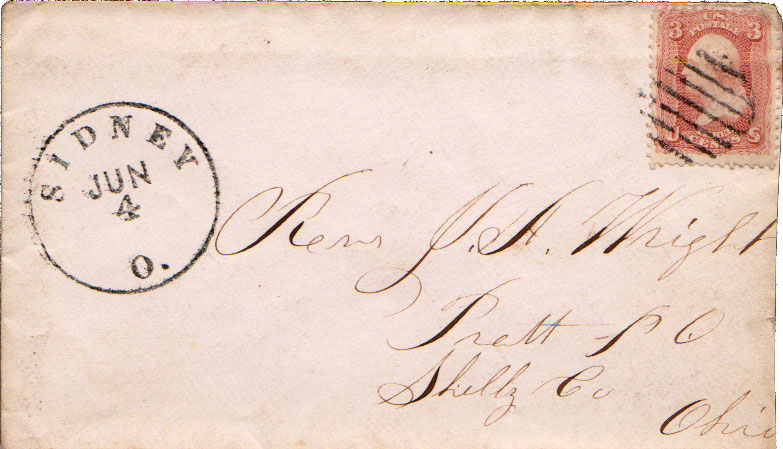 3 U.S. 3
POSTAGE
U CENTS S
SIDNEY
JUN
4
O.
Rev J. H. Wright
Pratt P O
Shelby Co
Ohio